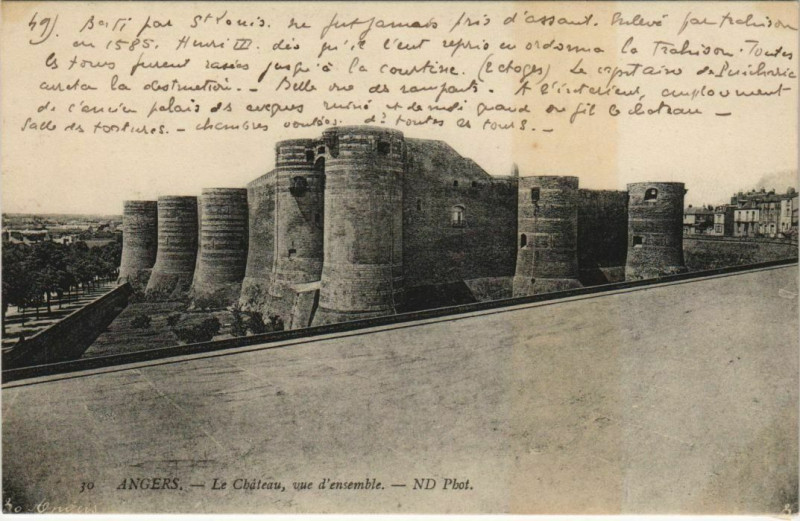 49) Bati par St Louis. ne fut jamais pris d'assaut. Enlevé par trahison
en 1585. Henri III. dès qu'il l'eut repris en ordonna la Toutes
les tours furent rasées jusqu'à la courtine. (2 étages) Le capitaine de
arreta la destruction. - Belle vue des remparts. - A l'intérieur, emplacement
de l'ancien palais des eveques ruiné et demoli quand on fit le chateau -
Salle des tortures. - chambres voutées ds toutes les tours. -
30 ANGERS. - Le Château, vue d'ensemble. - ND Phot.